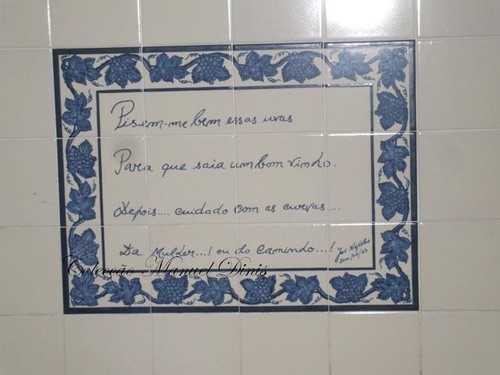 Pisem-me bem essas uvas
Para que saia um bom vinho.
Depois.... cuidado com as curvas....
Da Mulher...! ou do Caminho...!
Colecção Manuel Dinis